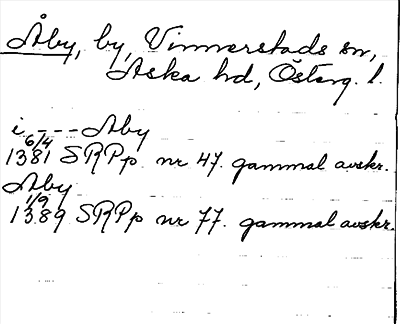 Åby, by, Vinnerstads sn,
Aska hd, Österg. l.
i - - - Aby
6/4
1381 SRPp nr 47. gammal avskr.
Aby
1/9
1389 SRPp nr 77. gammal avskr.